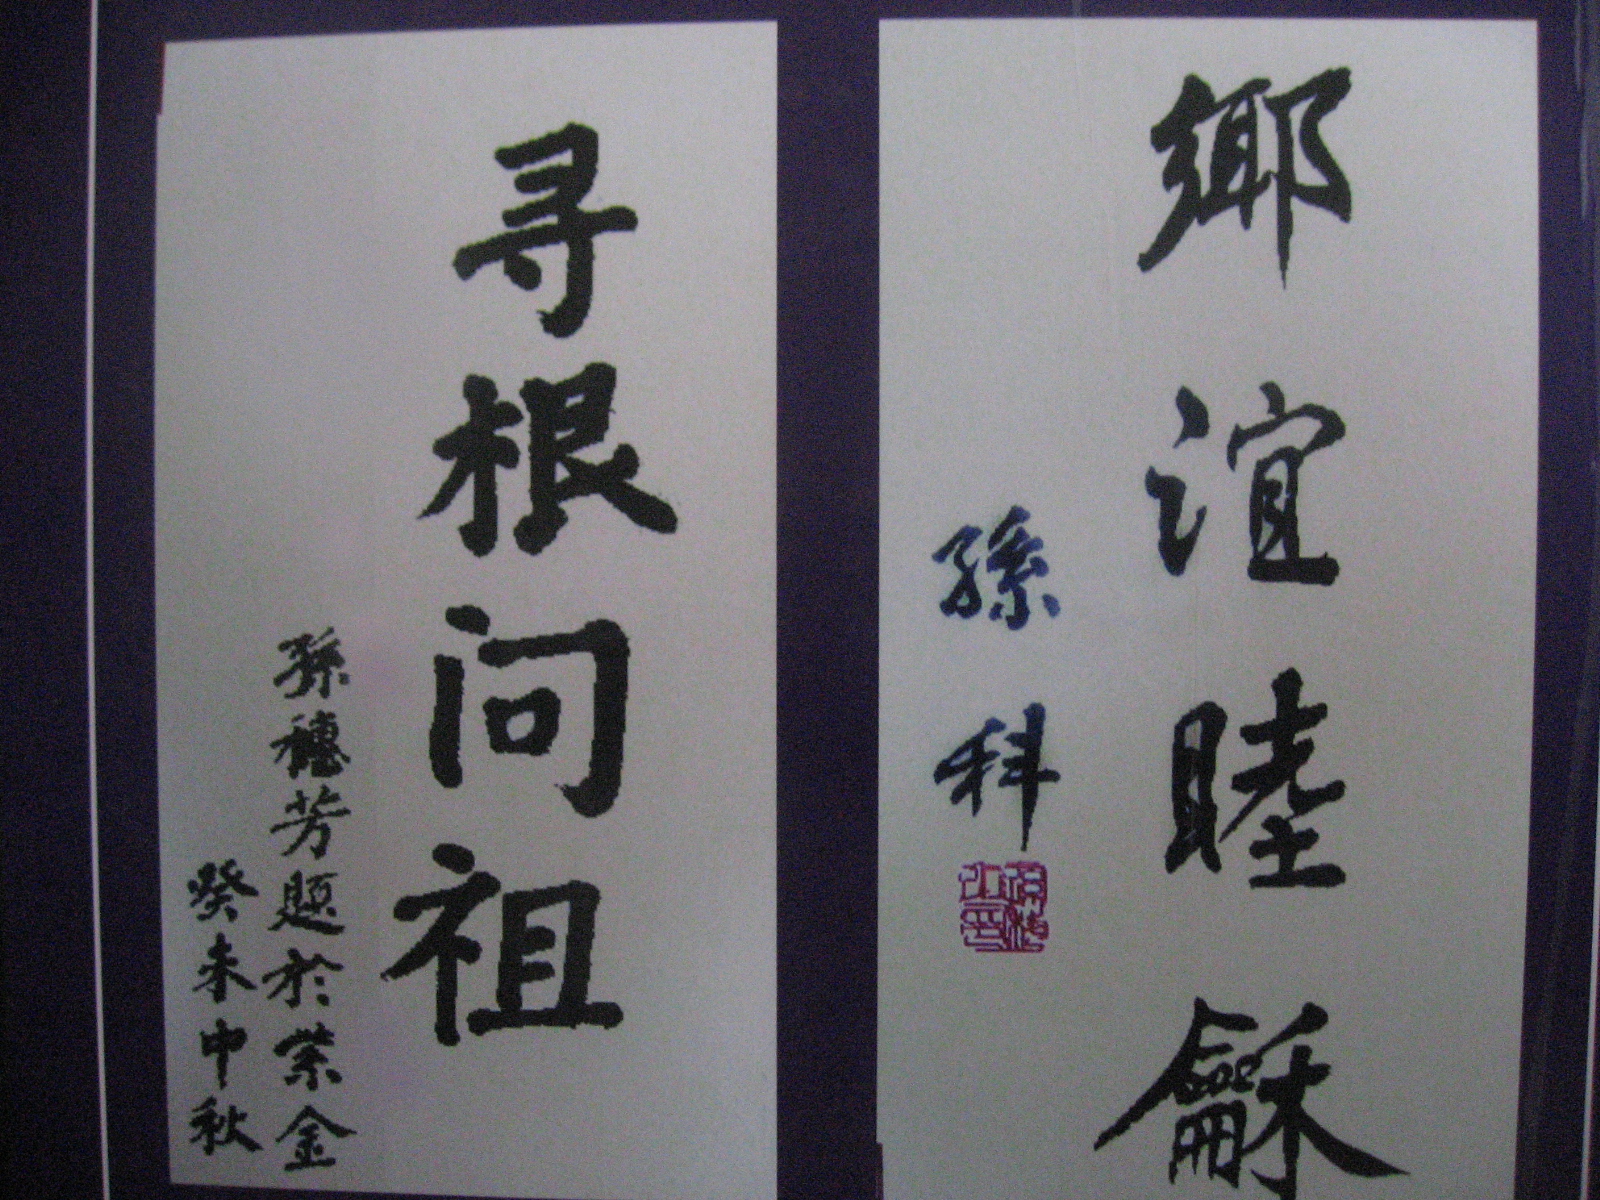 鄉誼睦龢
孫科
寻根问祖
孫穗芳题於紫金
癸未中秋